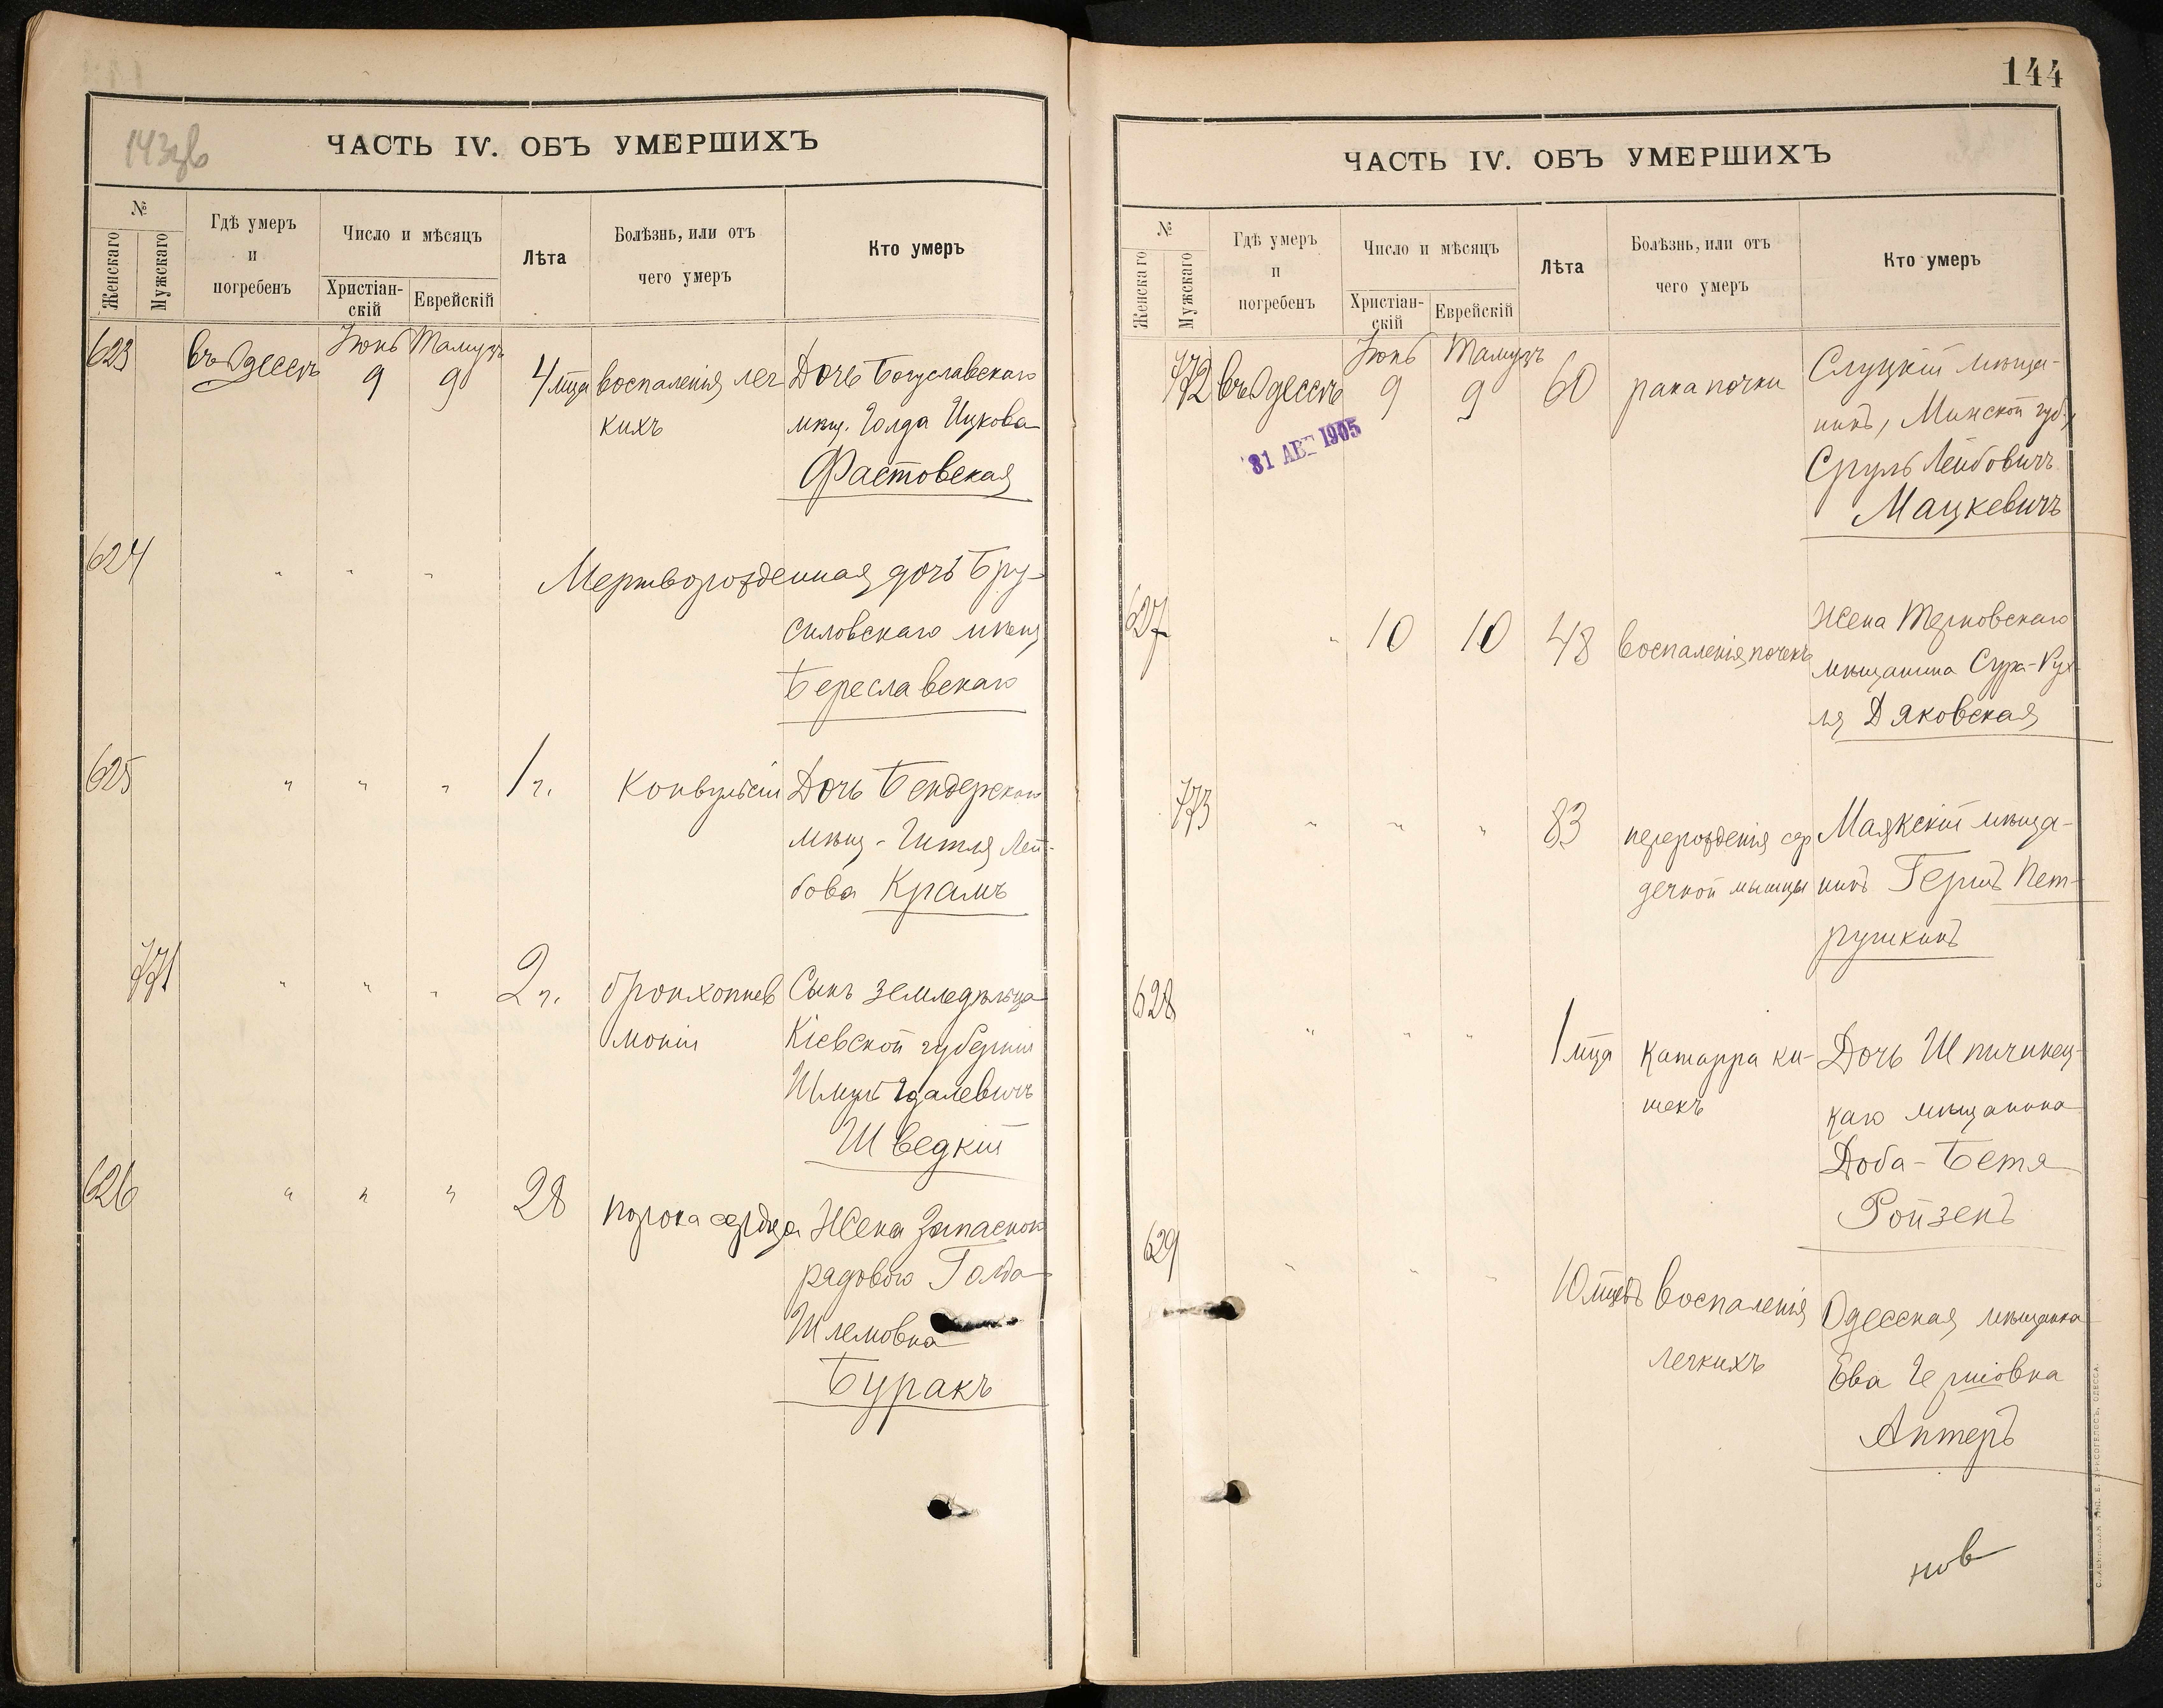 143 зв
ЧАСТЬ IV. ОБЪ УМЕРШИХЪ
№
Женскаго
Мужскаго
Гдѣ умеръ
и
погребенъ
Число и мѣсяцъ
Христіан-
скій
Еврейскій
Лѣта
Болѣзнь, или отъ
чего умеръ
Кто умеръ
623 въ Одессѣ Іюнь Тамузъ
9 9 4 м̃ца воспаленія лег Дочь Богуславскаго
кихъ мѣщ. Голда Ицкова
Фастовская
624 " " " Мертворожденная дочь Бру-
силовскаго мѣщ
Береславскаго
625 " " " 1 г. Конвульсіи Дочь Бендерскаго
мѣщ - Гитля Лей-
бова Крамъ
771 " " " 2 г. бронхопнев Сынъ земледѣльца
моніи Кіевской губерніи
Шмуль Удалевичъ
Шведкій
626 " " " 28 порока сердца Жена Запаснаго
рядоваго Голда
Шлемовна
Буракъ
144
ЧАСТЬ IV. ОБЪ УМЕРШИХЪ
№
Женскаго
Мужскаго
Гдѣ умеръ
и
погребенъ
Число и мѣсяцъ
Христіан-
скій
Еврейскій
Лѣта
Болѣзнь, или отъ
чего умеръ
Кто умеръ
772 въ Одессѣ Іюнь Тамузъ
9 9 60 рака почки Слуцкій мѣща-
нинъ, Минской губ.,
Сруль Лейбовичъ
Мацкевичъ
31 АВГ 1905
627 " 10 10 48 воспаленія почекъ Жена Терновскаго
мѣщанина Сура-Рух
ля Дяковская
773 " " " 83 перерожденія сер Маякскій мѣща-
дечной мышцы нинъ Гершъ Пет-
рушкинъ
628 " " " 1 м̃ца Катарра ки- Дочь Шпичинец-
шекъ каго мѣщанина
Доба-Бетя
Ройзенъ
629 " " " 10 м̃цевъ воспаленія Одесская мѣщанка
легкихъ Ева Гершовна
Аптеръ
нов